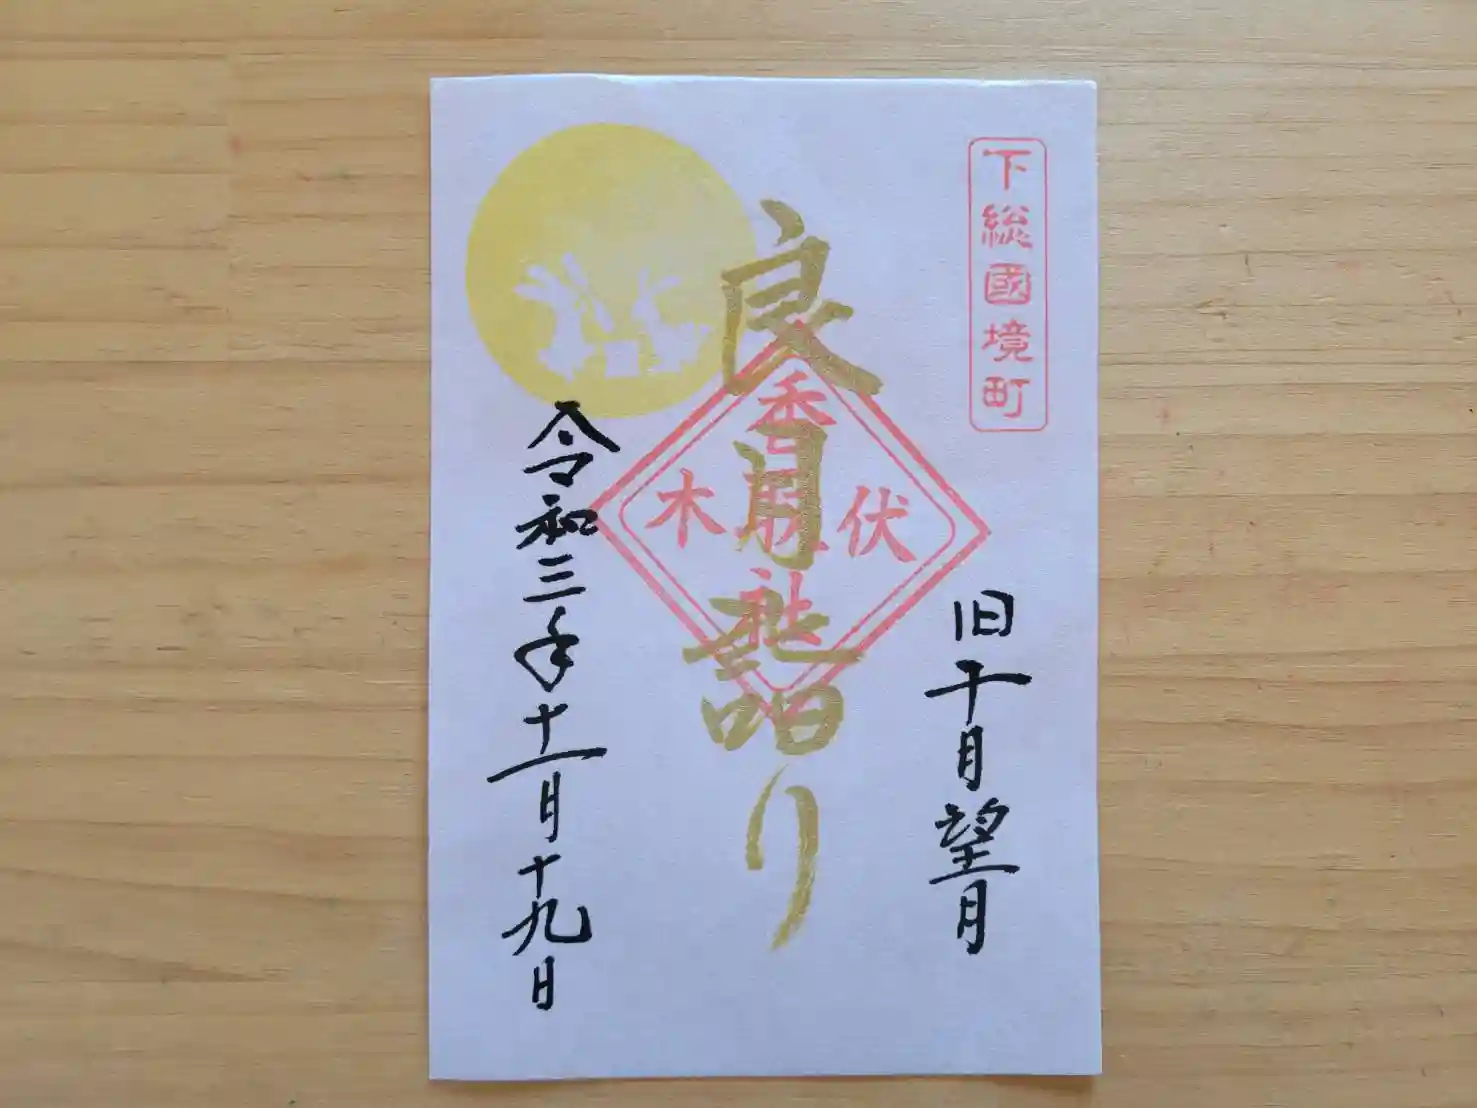 下総國境町
旧十月望月
良月詣り
伏木
香取社
令和三年十一月十九日